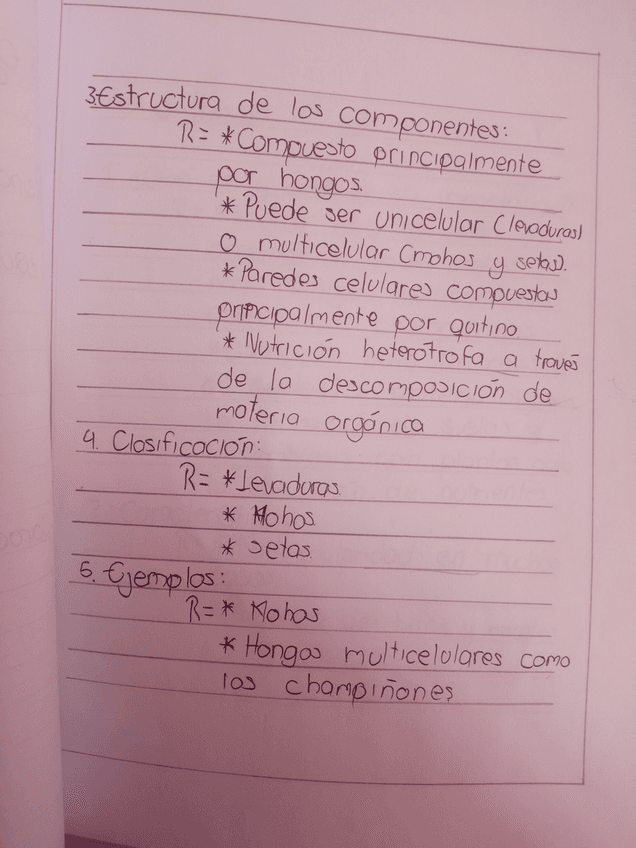 3. Estructura de los componentes:
R= * Compuesto principalmente
por hongos.
* Puede ser unicelular (levaduras)
o multicelular (mohos y setas).
* Paredes celulares compuestas
principalmente por quitina
* Nutrición heterótrofa a través
de la descomposición de
materia orgánica
4. Clasificación:
R= * Levaduras
* Mohos
* setas
5. Ejemplos:
R= * Mohos
* Hongos multicelulares como
los champiñones